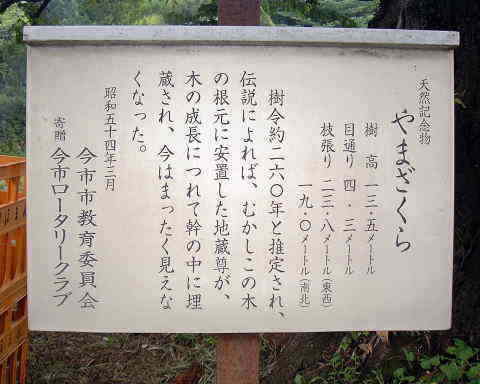 天然記念物
やまざくら
樹高 一三・五メートル
目通り 四・三メートル
枝張り 二三・八メートル(東西)
一九・〇メートル(南北)
樹令約二六〇年と推定され、
伝説によれば、むかしこの木
の根元に安置した地蔵尊が、
木の成長につれて幹の中に埋
蔵され、今はまったく見えな
くなった。
昭和五十四年三月
今市市教育委員会
寄贈 今市ロータリークラブ